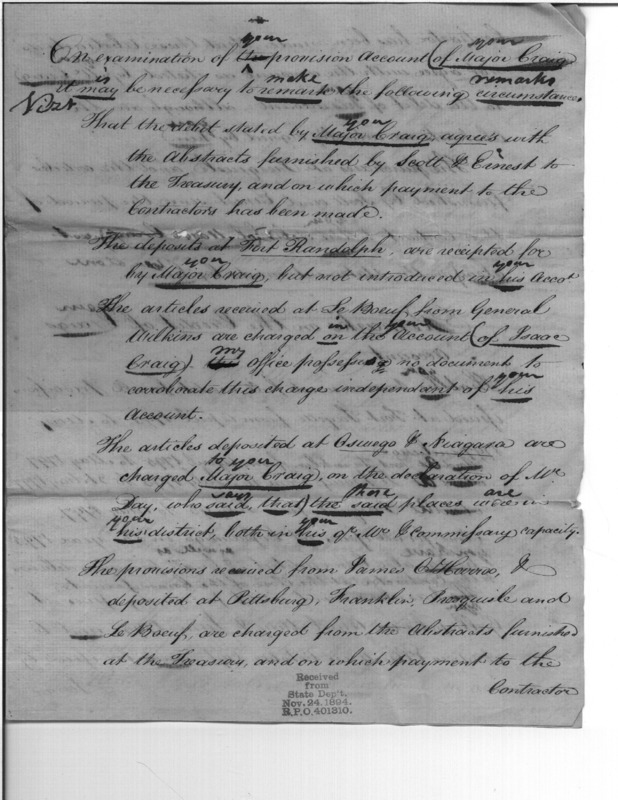 your your
On examination of the provision Account (of Major Craig
is make remarks
it may be necessary to remark the following circumstances,
No 24
you
That the debit stated by Major Craig, agrees with
the Abstracts furnished by Scott & Ernest to
the Treasury, and on which payment to the
Contractors has been made.
The deposits at Fort Randolph, are receipted for
you your
by Major Craig, but not introduced in his Accot
The articles received at Le Boeuf, from General
in your
Wilkins are charged on the Account (of Isaac
my
Craig) this office possesses no document to
your
coroborate this charge independant of his
Account.
The articles deposited at Oswego & Niagara are
to you
charged Major Craig, on the declaration of Mr.
says those are
Day, who said, that, the said places were in
your your
his district, both in his qr Mr & Commissary capacity.
The provisions received from James O'Harra, &
deposited at Pittsburg, Franklin, Presquisle and
Le Boeuf, are charged from the Abstracts furnished
at the Treasury, and on which payment to the
Contractor
Received
from
State Dep't.
Nov. 24. 1894.
R.P.O. 401310.